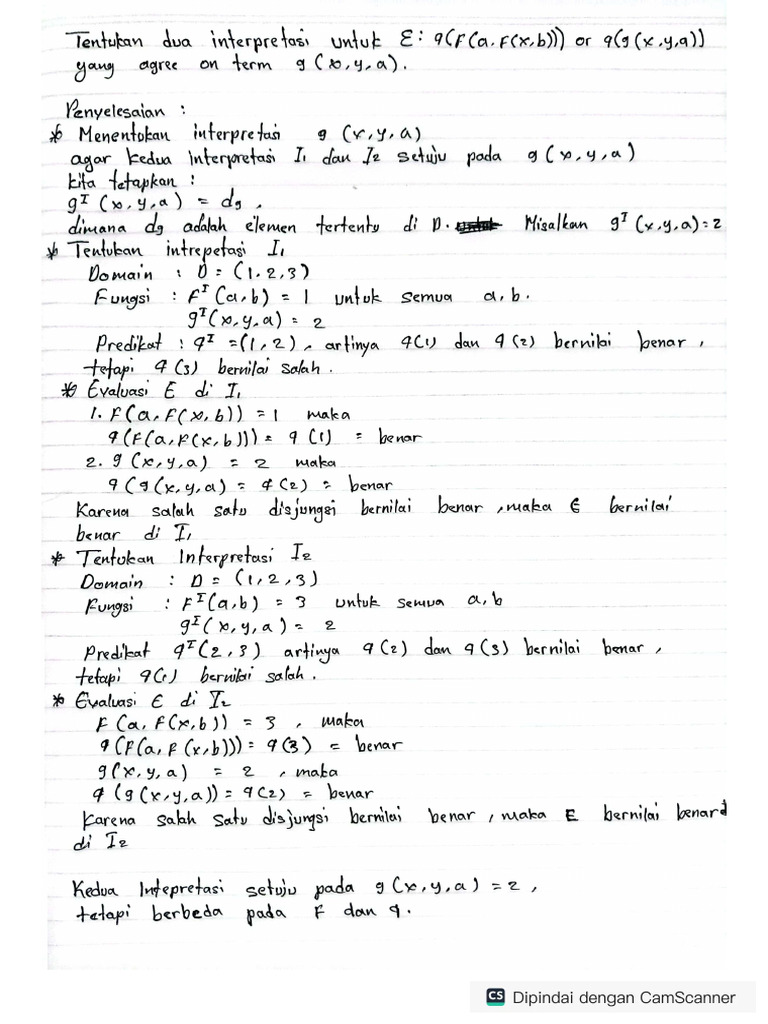 Tentukan dua interpretasi untuk E: q(F(a, F(x,b))) or q(g(x,y,a))
yang agree on term g(x,y,a).
Penyelesaian :
* Menentukan interpretasi g (x,y,a)
agar kedua Interpretasi I₁ dan I₂ setuju pada g(x,y,a)
kita tetapkan :
gᴵ (x,y,a) = dg,
dimana dg adalah elemen tertentu di D. Misalkan gᴵ (x,y,a)=2
* Tentukan intrepetasi I₁
Domain : D = (1,2,3)
Fungsi : Fᴵ (a,b) = 1 untuk semua a,b.
gᴵ(x,y,a) = 2
Predikat : qᴵ =(1,2), artinya q(1) dan q(2) bernilai benar,
tetapi q(3) bernilai salah.
* Evaluasi E di I₁
1. F(a, F(x,b)) = 1 maka
q(F(a,F(x,b))) = q(1) = benar
2. g(x,y,a) = 2 maka
q(g(x,y,a) = q(2) = benar
Karena salah satu disjungsi bernilai benar, maka E bernilai
benar di I₁
* Tentukan Interpretasi I₂
Domain : D = (1,2,3)
Fungsi : Fᴵ(a,b) = 3 untuk semua a,b
gᴵ(x,y,a) = 2
Predikat qᴵ(2,3) artinya q(2) dan q(3) bernilai benar,
tetapi q(1) bernilai salah.
* Evaluasi E di I₂
F(a, F(x,b)) = 3, maka
q(F(a, F(x,b))) = q(3) = benar
g(x,y,a) = 2, maka
q(g(x,y,a)) = q(2) = benar
Karena salah satu disjungsi bernilai benar, maka E bernilai benar
di I₂
Kedua Intepretasi setuju pada g(x,y,a) = 2,
tetapi berbeda pada F dan q.
CS Dipindai dengan CamScanner